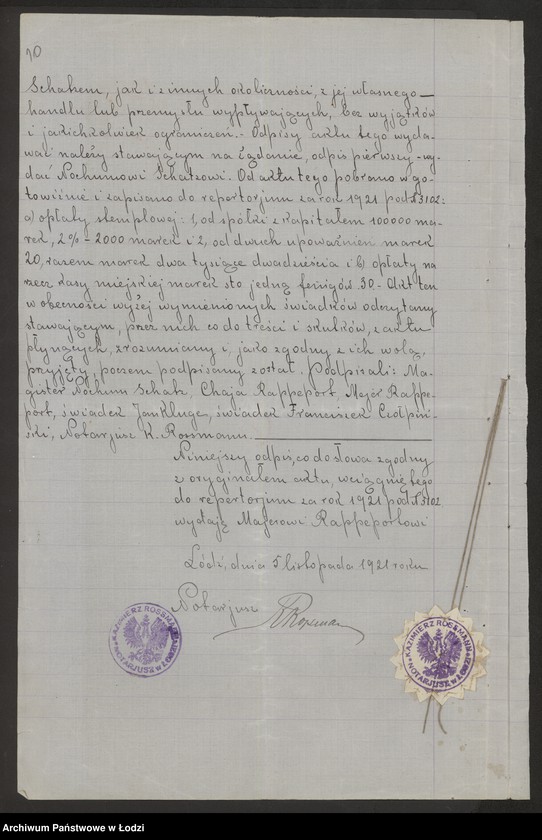 10
Schakem, jak i z innych okoliczności, z jej własnego
handlu lub przemysłu wypływających, bez wyjątków
i jakichkolwiek ograniczeń.- Odpisy aktu tego wyda-
wać należy stawającym na żądanie, odpis pierwszy wy-
dać Nochumowi Schatzowi. Od aktu tego pobrano w go-
towiźnie i zapisano do repertorjum za rok 1921 pod № 3102:
a) opłaty stemplowej: 1, od spółki z kapitałem 100000 ma-
rek, 2% - 2000 marek i 2, od dwuch upoważnień marek
20, razem marek dwa tysiące dwadzieścia i b) opłaty na
rzecz kasy miejskiej marek sto jedną fenigów 30.- Akt ten
w obecności wyżej wymienionych świadków odczytany
stawającym, przez nich co do treści i skutków, z aktu
płynących, zrozumiany i, jako zgodny z ich wolą,
przyjęty, poczem podpisany został. Podpisali: Ma-
gister Nochum Schak, Chaja Rappeport, Majer Rappe-
port, świadek Jan Kluge, świadek Franciszek Ciołpiń-
ski, Notarjusz K. Rossmann.
Niniejszy odpis, co do słowa zgodny
z oryginałem aktu, wciągniętego
do repertorjum za rok 1921 pod № 3102
wydaję Majerowi Rappeportowi
Łódź, dnia 5 listopada 1921 roku
Notarjusz KRossman
KAZIMIERZ ROSSMANN
NOTARJUSZ w Ł
KAZIMIERZ ROSSMANN
NOTARJUSZ w Ł
Archiwum Państwowe w Łodzi